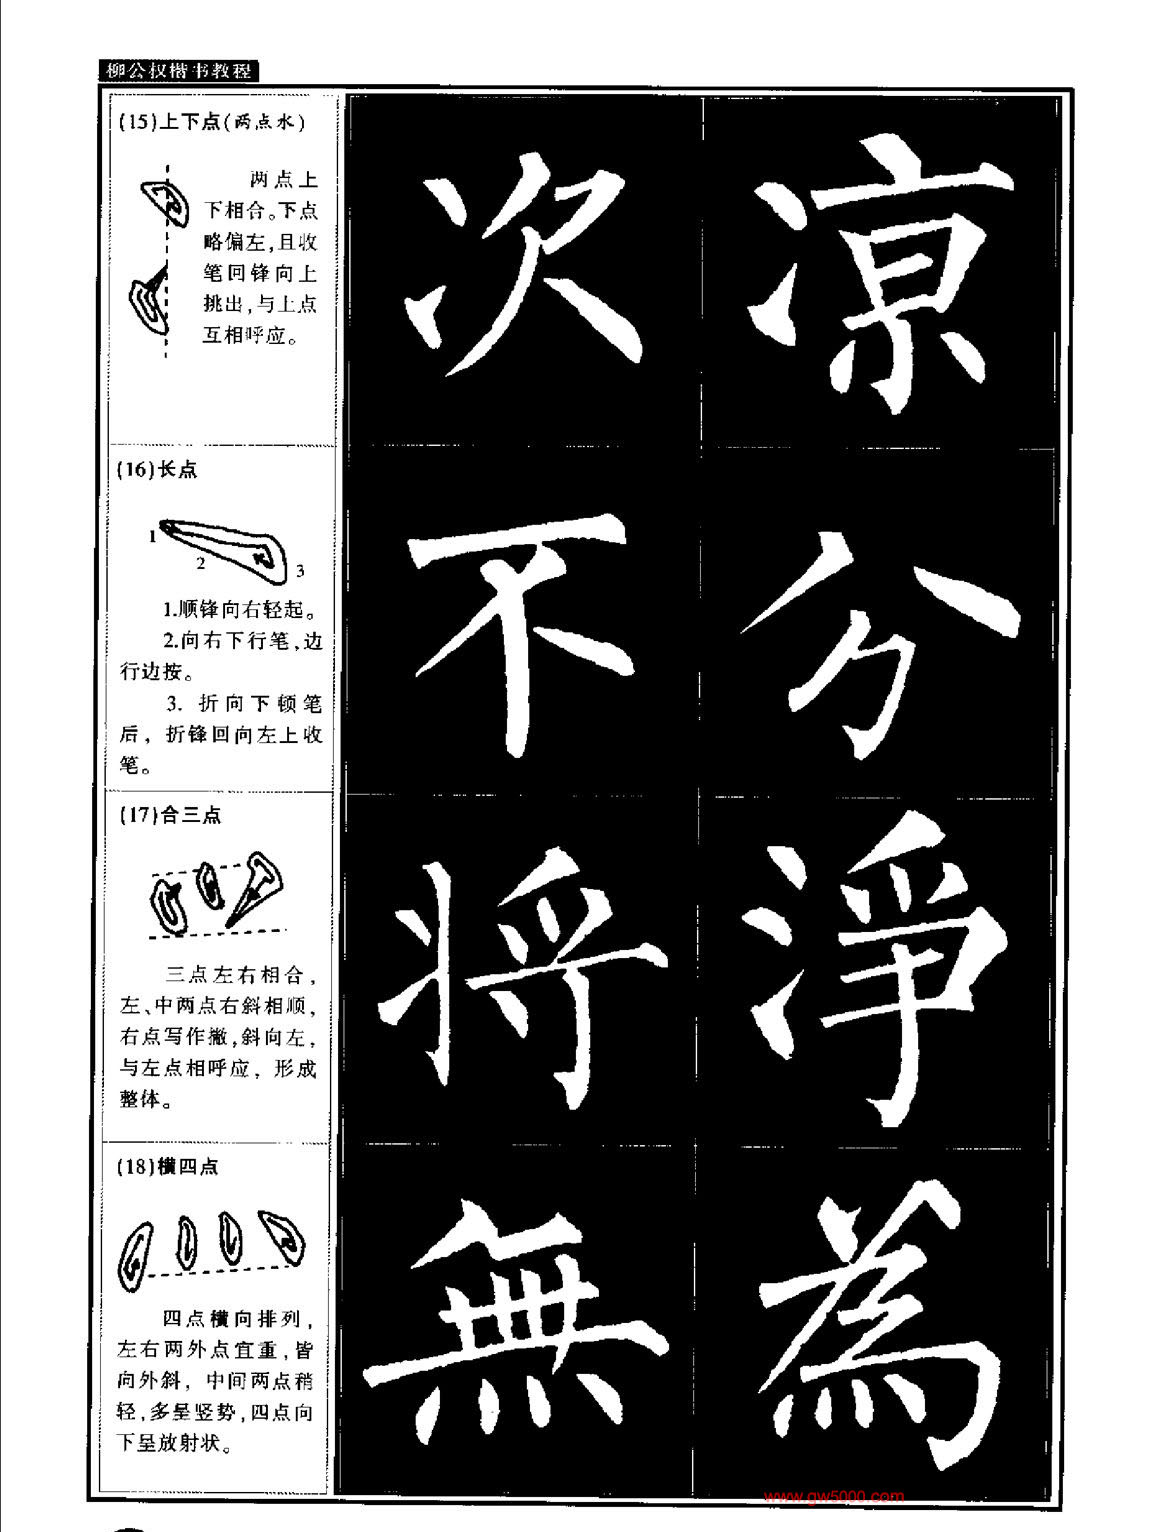 柳公权楷书教程
(15)上下点(两点水)
两点上
下相合。下点
略偏左,且收
笔回锋向上
挑出,与上点
互相呼应。
次 凉
(16)长点
1 2 3
1.顺锋向右轻起。
2.向右下行笔,边
行边按。
3. 折向下顿笔
后, 折锋回向左上收
笔。
不 分
(17)合三点
三点左右相合,
左、中两点右斜相顺,
右点写作撇,斜向左,
与左点相呼应, 形成
整体。
将 淨
(18)横四点
四点横向排列,
左右两外点宜重,皆
向外斜, 中间两点稍
轻,多呈竖势,四点向
下呈放射状。
無 為
www.gw5000.com